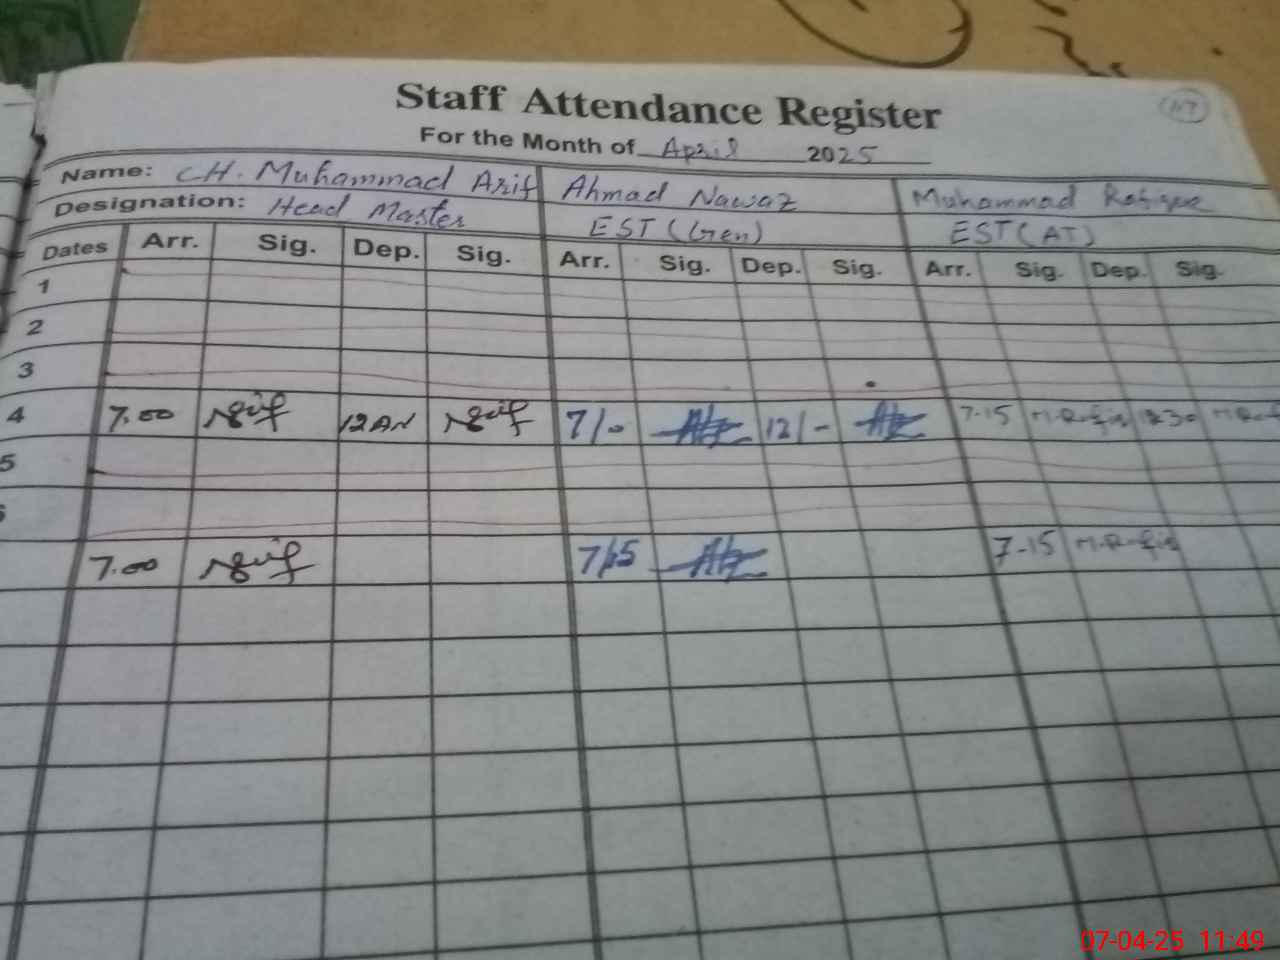 117
Staff Attendance Register
For the Month of April 2025
Name: CH. Muhammad Arif Ahmad Nawaz Muhammad Rafique
Designation: Head Master EST (Gen) EST (AT)
Dates Arr. Sig. Dep. Sig. Arr. Sig. Dep. Sig. Arr. Sig. Dep. Sig.
1
2
3
4 7.00 12 7/- 12/- 7-15 12-30
5
7.00 7/15 7-15
07-04-25 11:49